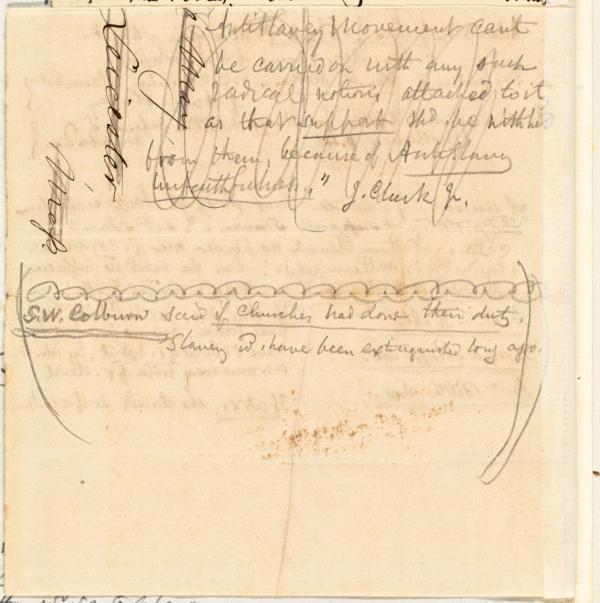 Antislavery Movement can't
be carried on with any such
radical notions attached to it
as that support shd. be withhe
from them, because of AntiSlavery
unfaithfulness," J. Clark Jr.
S. W. Colburn said if Churches had done their duty,
Slavery wd. have been extinguished long ago.
Leicester
May